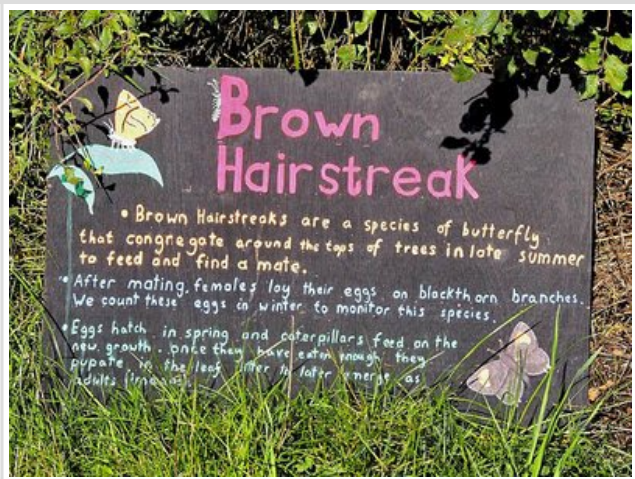 Brown
Hairstreak
• Brown Hairstreaks are a species of butterfly
that congregate around the tops of trees in late summer
to feed and find a mate.
• After mating, females lay their eggs on blackthorn branches.
We count these eggs in winter to monitor this species.
• Eggs hatch in spring and caterpillars feed on the
new growth. once they have eaten enough they
pupate in the leaf litter to later emerge as
adults